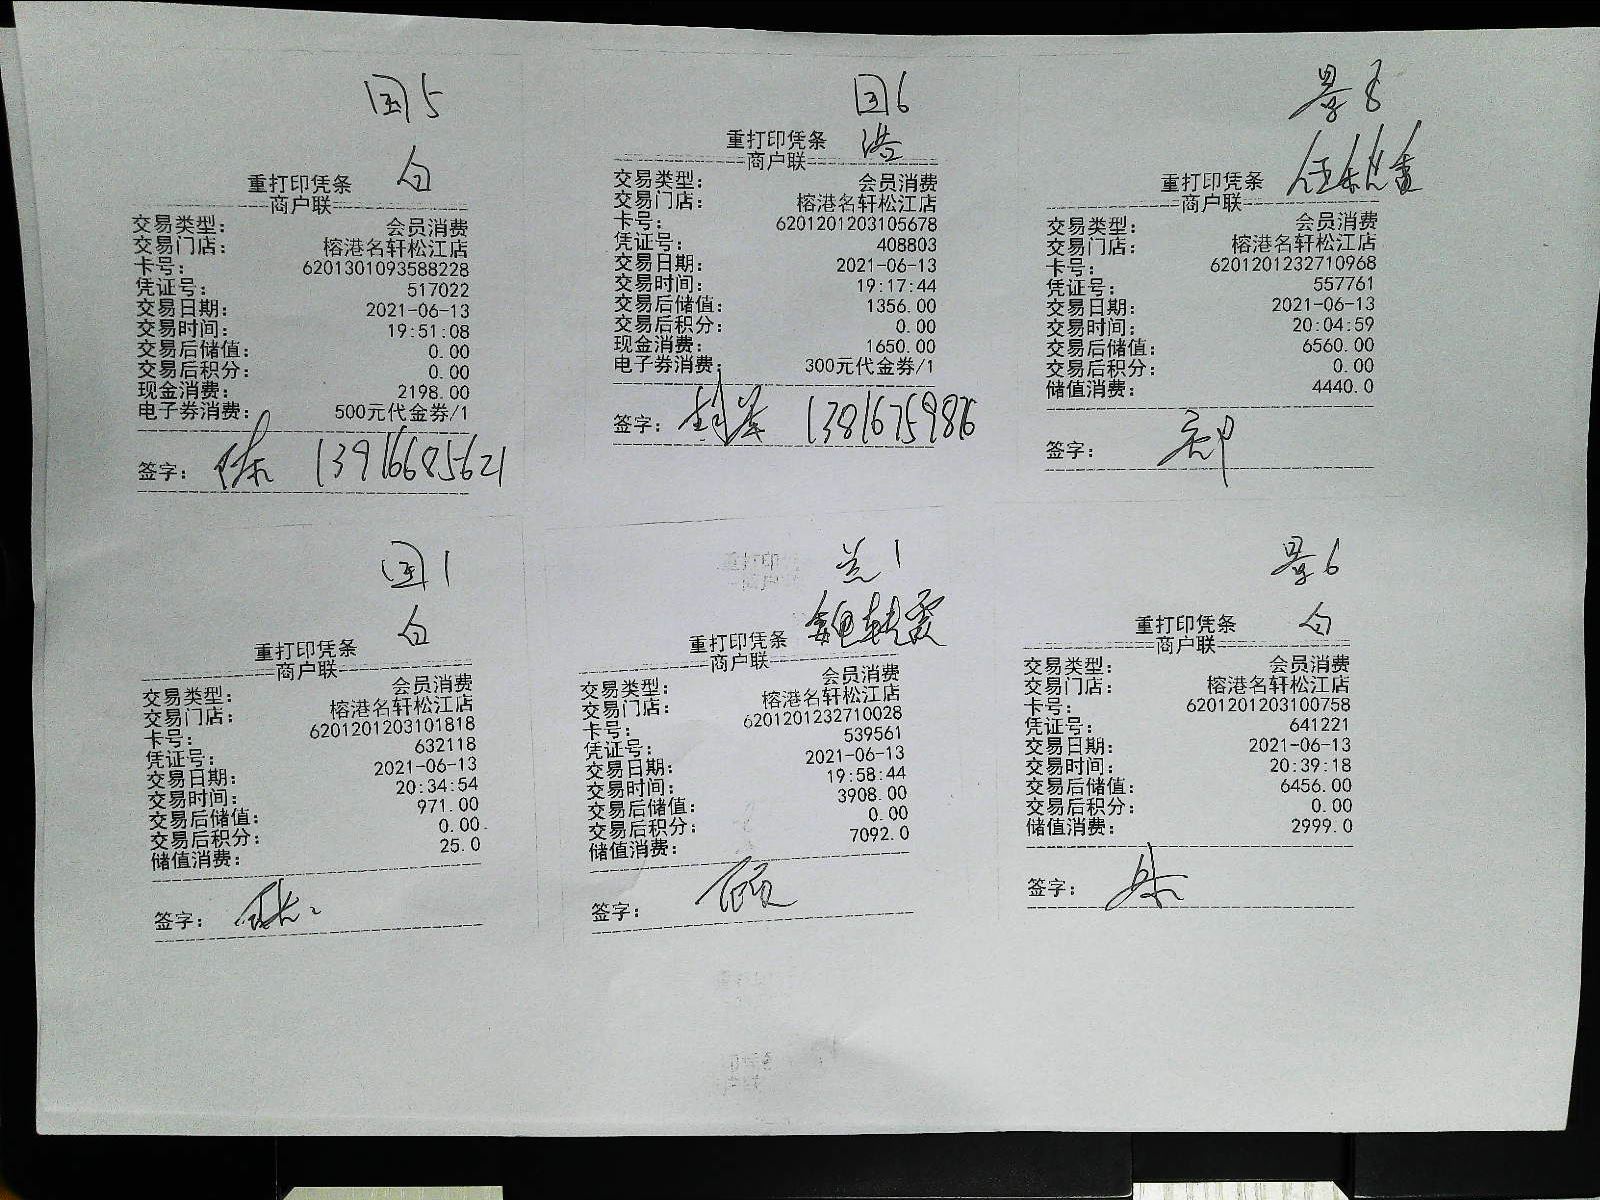 国5
白
重打印凭条
商户联
交易类型: 会员消费
交易门店: 榕港名轩松江店
卡号: 6201301093588228
凭证号: 517022
交易日期: 2021-06-13
交易时间: 19:51:08
交易后储值: 0.00
交易后积分: 0.00
现金消费: 2198.00
电子券消费: 500元代金券/1
签字: 陈 13916685621
国6
浩
重打印凭条
商户联
交易类型: 会员消费
交易门店: 榕港名轩松江店
卡号: 6201201203105678
凭证号: 408803
交易日期: 2021-06-13
交易时间: 19:17:44
交易后储值: 1356.00
交易后积分: 0.00
现金消费: 1650.00
电子券消费: 300元代金券/1
签字: 13816759876
景8
重打印凭条
商户联
交易类型: 会员消费
交易门店: 榕港名轩松江店
卡号: 6201201232710968
凭证号: 557761
交易日期: 2021-06-13
交易时间: 20:04:59
交易后储值: 6560.00
交易后积分: 0.00
储值消费: 4440.0
签字:
国1
白
重打印凭条
商户联
交易类型: 会员消费
交易门店: 榕港名轩松江店
卡号: 6201201203101818
凭证号: 632118
交易日期: 2021-06-13
交易时间: 20:34:54
交易后储值: 971.00
交易后积分: 0.00
储值消费: 25.0
签字:
兰1
重打印凭条
商户联
交易类型: 会员消费
交易门店: 榕港名轩松江店
卡号: 6201201232710028
凭证号: 539561
交易日期: 2021-06-13
交易时间: 19:58:44
交易后储值: 3908.00
交易后积分: 0.00
储值消费: 7092.0
签字: 顾
景6
白
重打印凭条
商户联
交易类型: 会员消费
交易门店: 榕港名轩松江店
卡号: 6201201203100758
凭证号: 641221
交易日期: 2021-06-13
交易时间: 20:39:18
交易后储值: 6456.00
交易后积分: 0.00
储值消费: 2999.0
签字: 朱